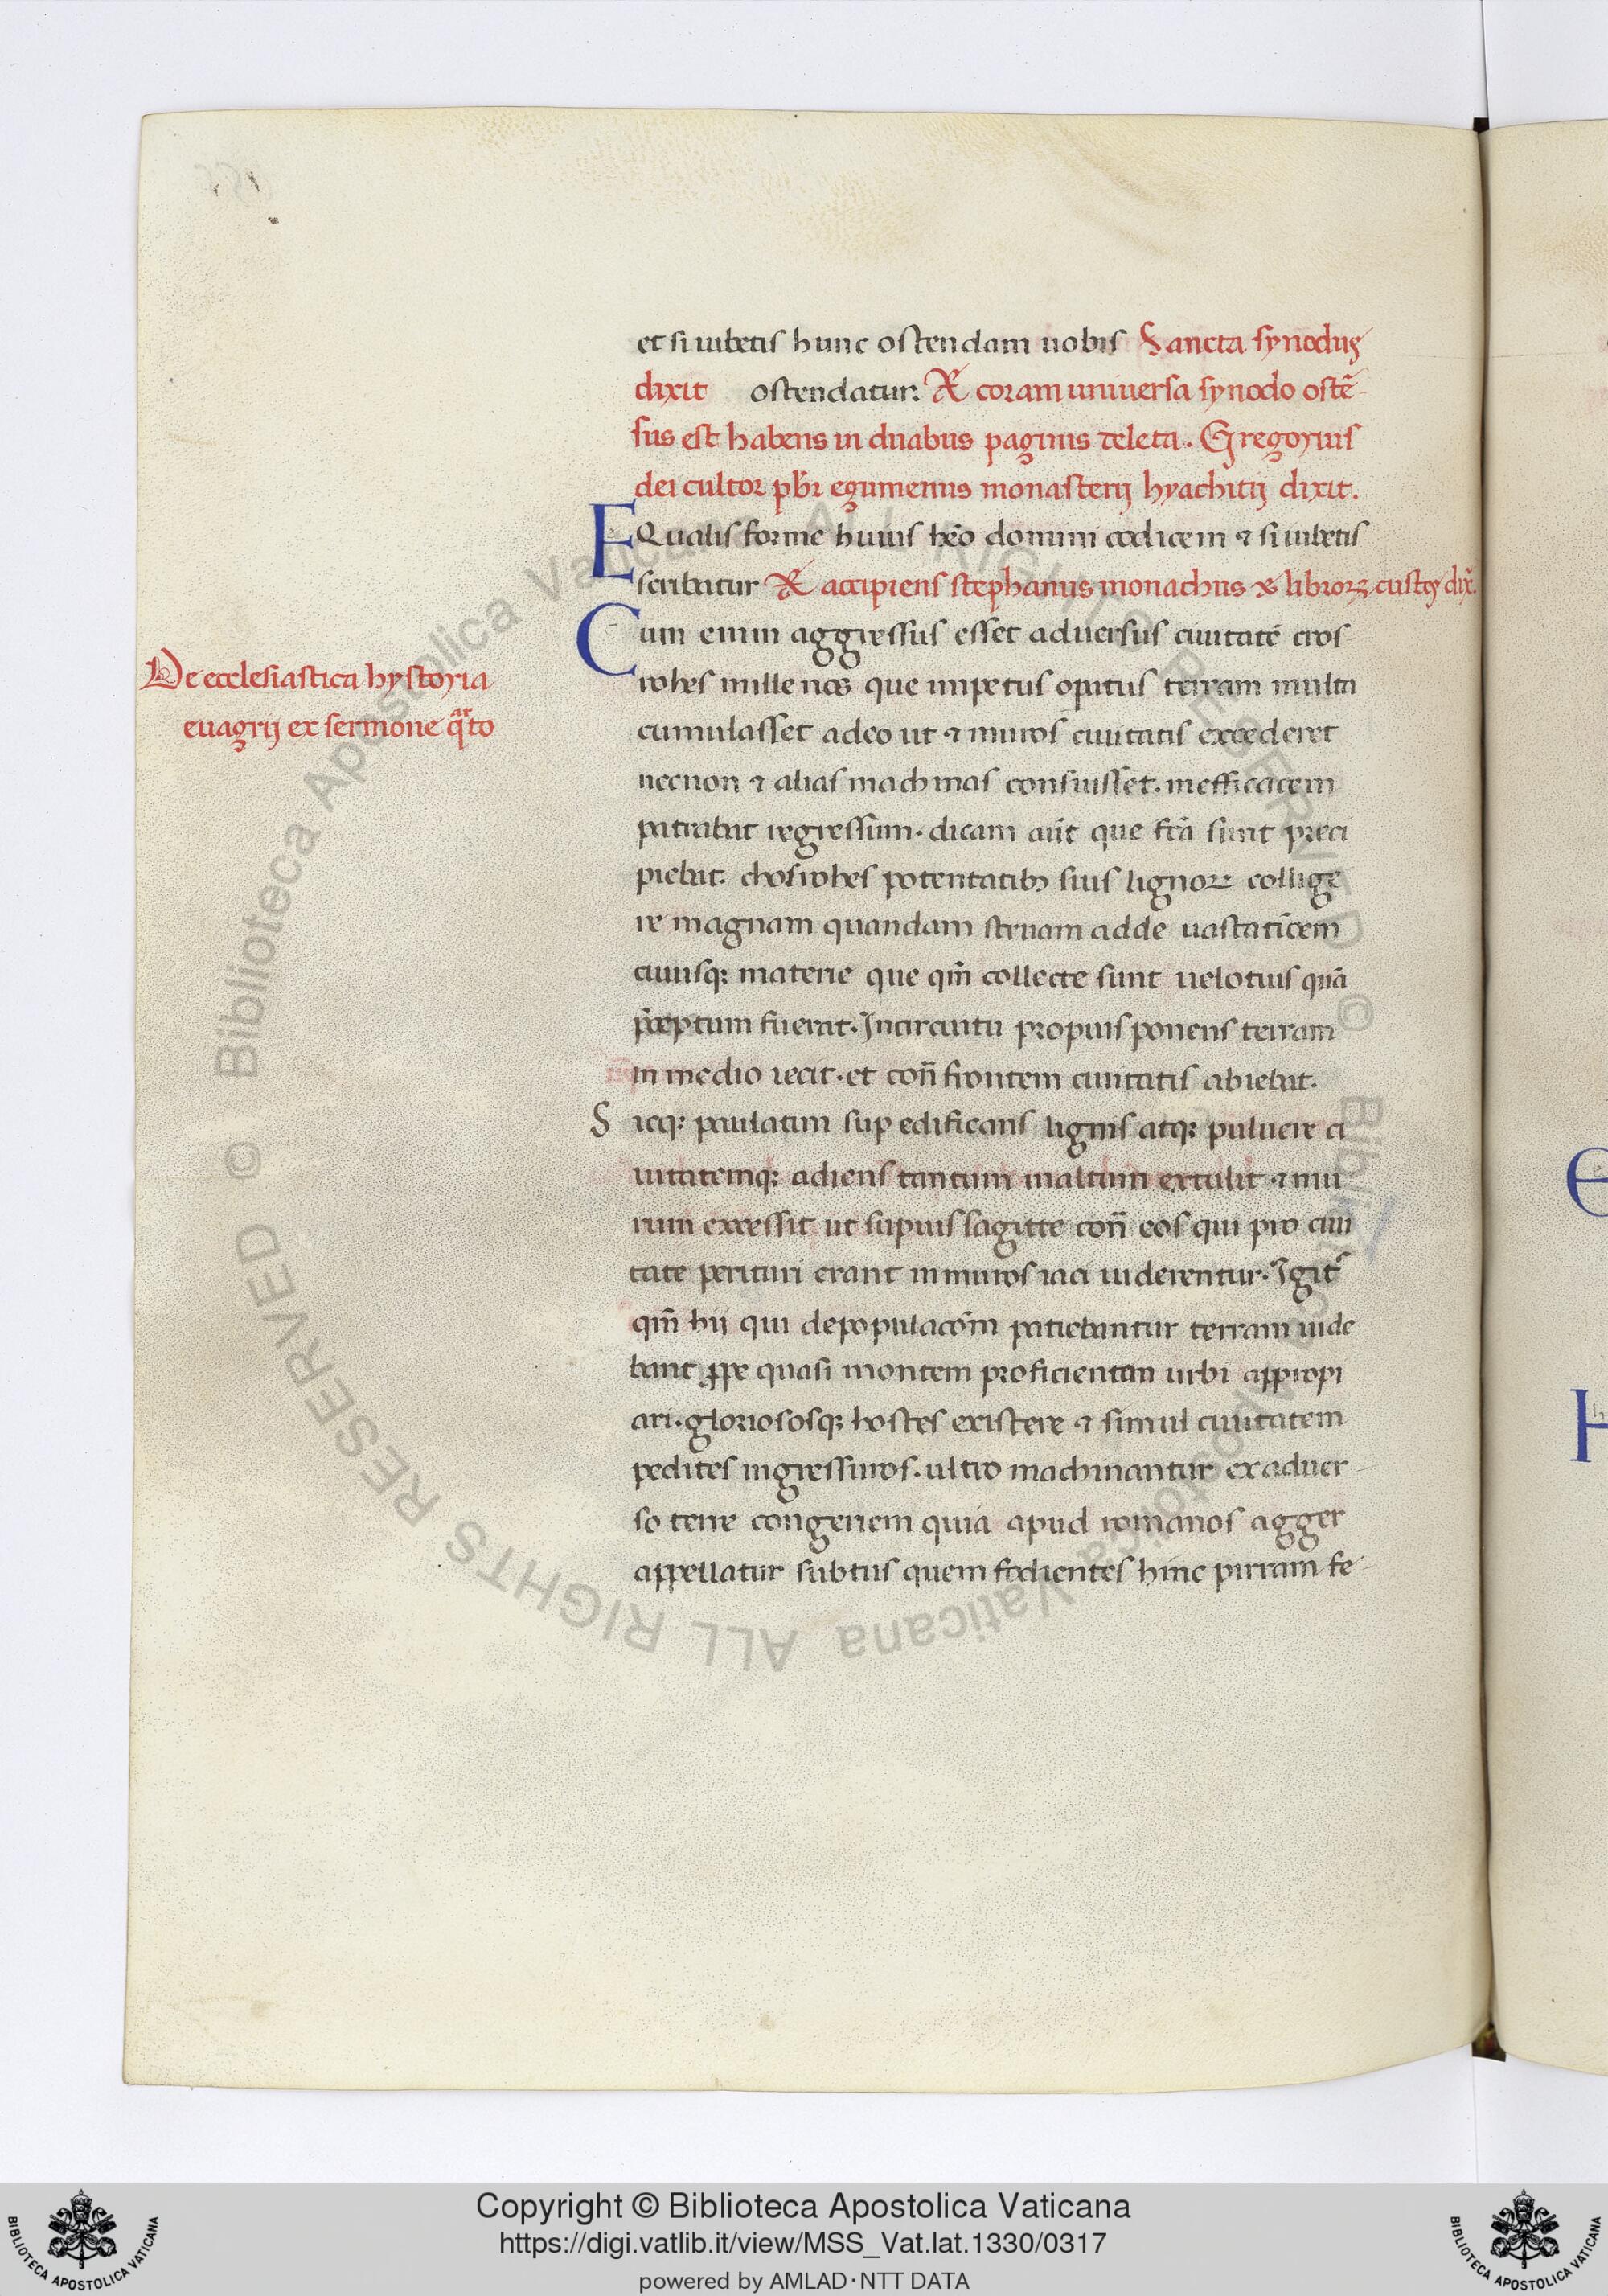 et si iubetis hunc ostendam uobis Sancta synodus
dixit ostendatur: Et coram uniuersa synodo ostē
sus est habens in duabus paginis teleta. Gregorius
dei cultor pbr̄ egumenus monasterij hyachitij dixit.
EQualis forme huius hēo domini codicem ⁊ si iubetis
scribatur Et accipiens stephanus monachus & libroꝝ custos dix̄.
Cum enim aggressus esset aduersus ciuitatē cros
De ecclesiastica hystoria
euagrij ex sermone qͣrto
rohes mille nos que impetus opatus terram multa
cumulasset adeo ut ⁊ muros ciuitatis excederet
necnon ⁊ alias machinas consuisset. inefficacem
patrabat regressum. dicam aūt que fcā sunt preci
piebat. chosrohes potentatibꝫ suis lignoꝝ collige
re magnam quandam struam adde uastatīcem
cuiusqꝫ materie que qm̄ collecte sunt uelotius quā
p̄ceptum fuerat. Incircuitu propuis ponens terram
in medio iecit. et con̄ frontem ciuitatis abiebat.
Sicqꝫ paulatim sup edificans lignis atqꝫ puluere ci
uitatemqꝫ adiens tantum inaltum extulit ⁊ mu
rum excessit ut supuis sagitte con̄ eos qui pro ciui
tate perituri erant inmuros iaci uiderentur. Igit᷑
qm̄ hij qui depopulacōm patiebantur terram uide
bant ꝓpe quasi montem proficientem urbi appropi
ari. gloriososqꝫ hostes existere ⁊ simul ciuitatem
pedites ingressuros. ultro machinantur exaduer
so terre congeriem quia apud romanos agger
appellatur subtus quem fodientes hinc pirram fe
Copyright © Biblioteca Apostolica Vaticana
https://digi.vatlib.it/view/MSS_Vat.lat.1330/0317
powered by AMLAD·NTT DATA
BIBLIOTECA APOSTOLICA VATICANA
BIBLIOTECA APOSTOLICA VATICANA
© Biblioteca Apostolica Vaticana ALL RIGHTS RESERVED © Biblioteca Apostolica Vaticana ALL RIGHTS RESERVED